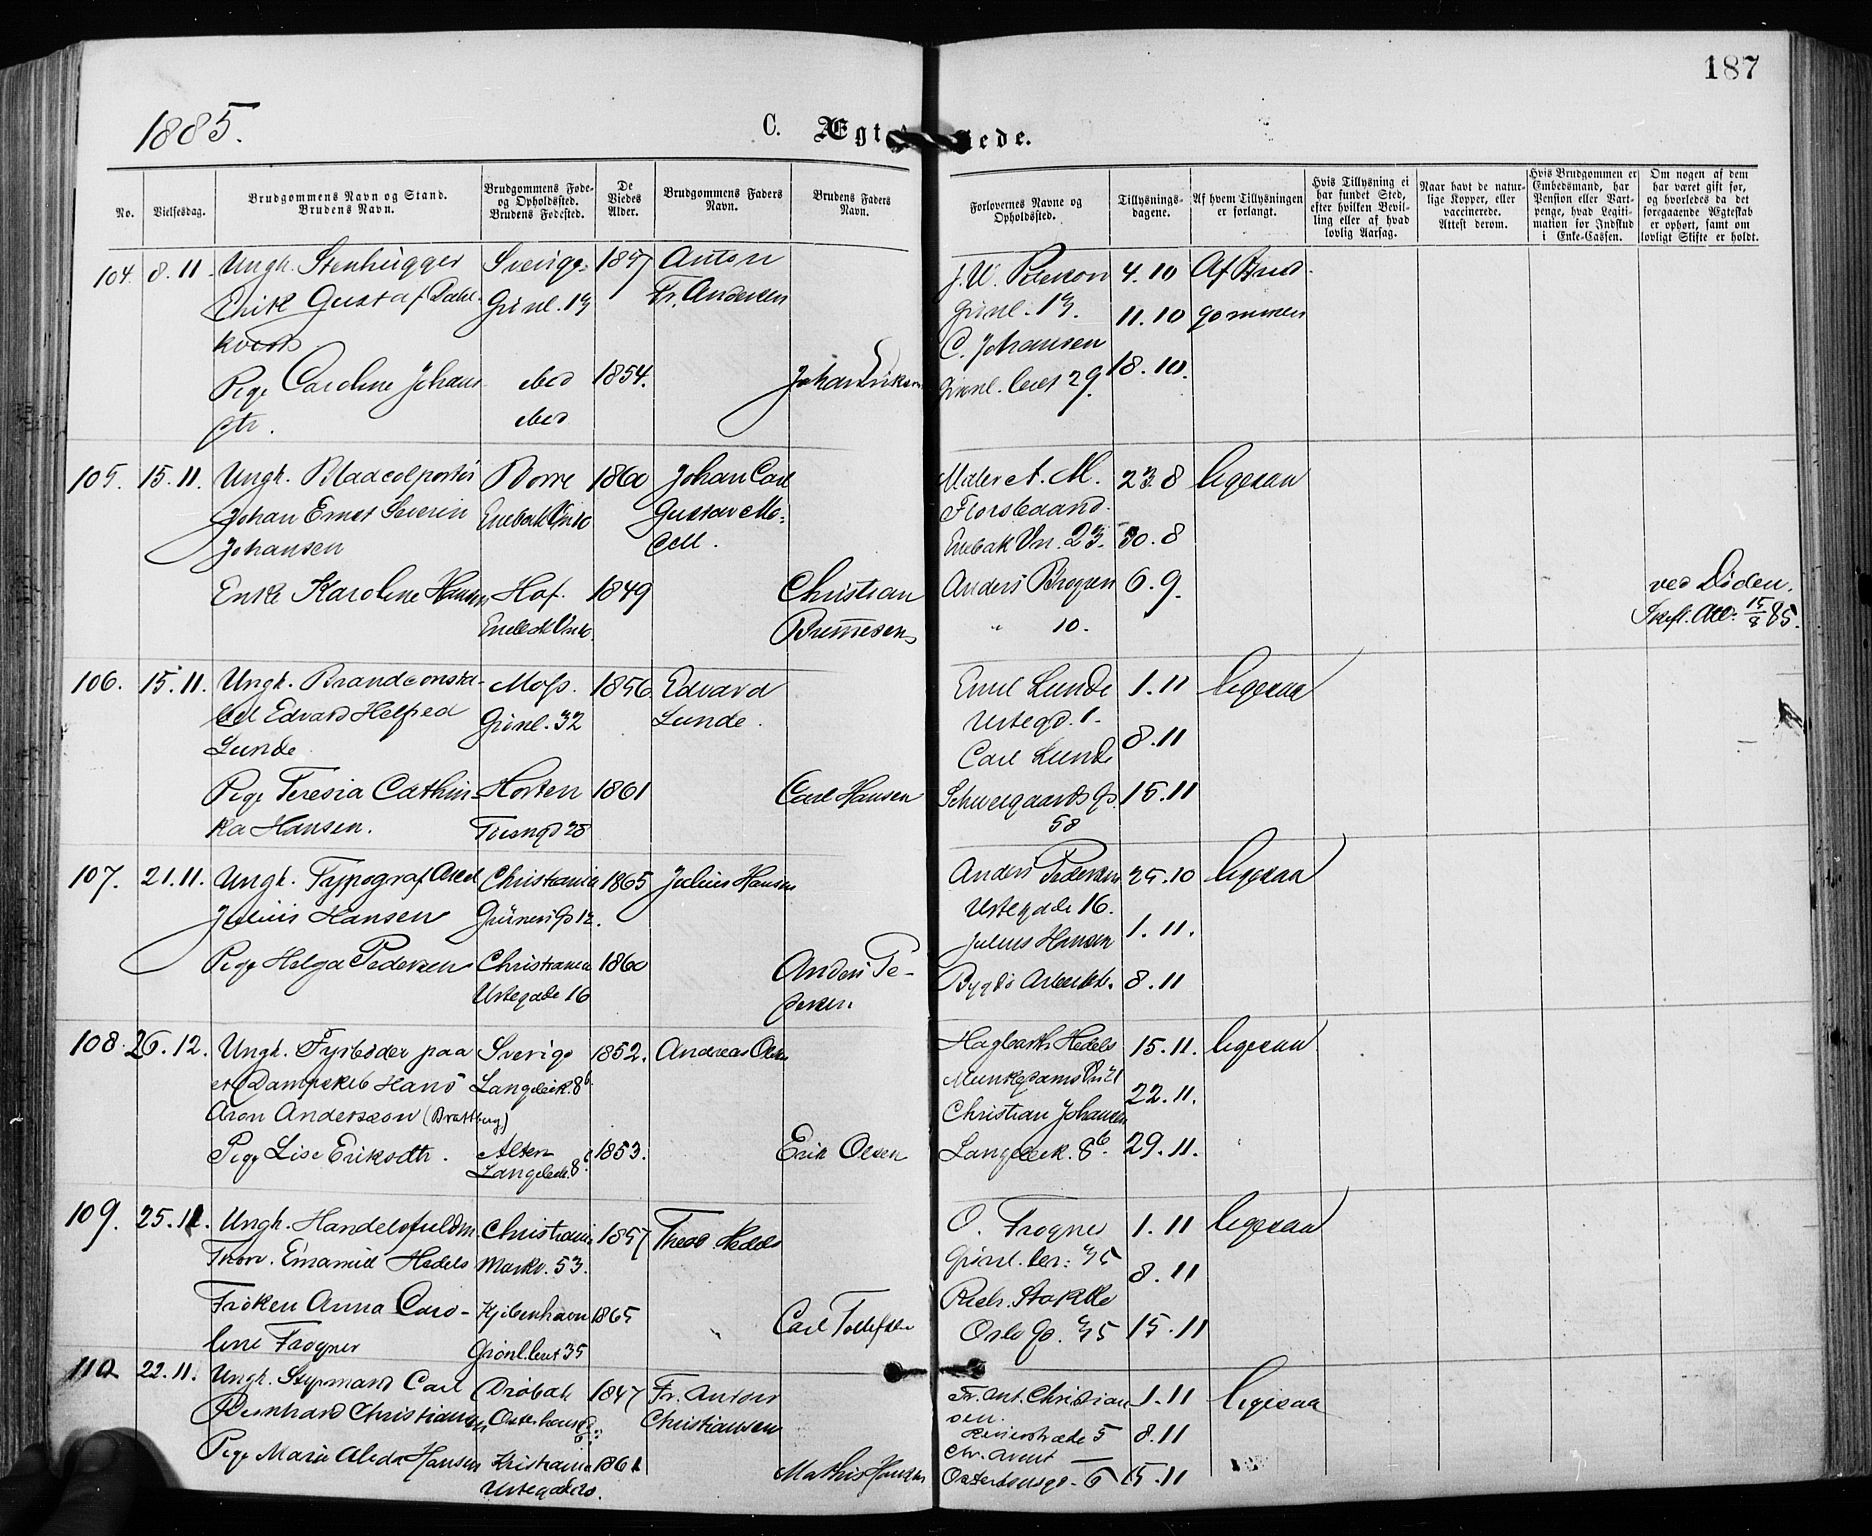 187
1885.
C. Ægt
ede.
No.
Vielsesdag.
Brudgommens Navn og Stand.
Brudens Navn.
Brudgommens Føde-
og Opholdssted.
Brudens Fødested.
De
Viedes
Alder.
Brudgommens Faders
Navn.
Brudens Faders
Navn.
Forlovernes Navne og
Opholdssted.
Tillysnings-
dagene.
Af hvem Tillysningen
er forlangt.
Hvis Tillysning ei
har fundet Sted,
efter hvilken Bevil-
ling eller af hvad
lovlig Aarsag.
Naar havt de natur-
lige Kopper, eller
vaccinerede.
Attest derom.
Hvis Brudgommen er
Embedsmand, har
Pension eller Vart-
penge, hvad Legiti-
mation for Indskud
i Enke-Cassen.
Om nogen af dem
har været gift før,
og hvorledes da det
foregaaende Ægteskab
er ophørt, samt om
lovligt Skifte er holdt.
104. 8.11. Ungk. Stenhugger Sverige 1857 Anton
Erik Gustaf Dahl- Grønl. 13 Fr. Andersen
kvest
Pige Caroline Johans ibid 1854. Johan Eriksen
dtr. ibid
Grønl. 13. 4.10 Af Brud-
C. Johansen 11.10 gommen
Grønl. leret 29. 18.10.
105. 15.11. Ungk. Bladcolportør Borre 1860 Johan Carl
Johan Ernst Severin Gustav Mo-
Johansen cell.
Enke Karoline Hansen Hof. 1849 Christian
A. M. 23.8 ligesaa
30.8
Anders 6.9.
" 10.
ved Døden.
Skift. Att. 15/8 85.
106. 15.11. Ungk. Brandconsta- Moss. 1856 Edvard
bel Edvard Helfred Grønl. 32 Lunde.
Lunde
Pige Teresia Cathin- Horten 1861 Carl Hansen
ka Hansen. 28
Emil Lunde 1.11 ligesaa
Urtegd. 1.
Carl Lunde 8.11
Schweigaards Gd. 15.11
58
107. 21.11. Ungk. Typograf Axel Christiania 1865 Julius Hansen
Julius Hansen Grüners Gd 12.
Pige Helga Pedersen Christiania 1860 Anders Pe-
Urtegade 16 dersen.
Anders Pedersen 25.10 ligesaa
Urtegade 16.
Julius Hansen 1.11.
Bygdø 8.11
108. 26.12. Ungk. Fyrbøder paa Sverige 1852. Andreas Olsen
et Dampskib Hanö Langeleik. 8b
Aron Andersson (Brattberg)
Pige Lise Eriksdtr. Alten 1853. Erik Olsen
Hagbarth Hedels 15.11. ligesaa
22.11.
Christian Johansen
Langeleik. 8b. 29.11.
109. 25.11. Ungk. Handelsfuldm. Christiania 1857 Theod. Hedels
Thorv. Emanuel Hedels Markv. 53.
Frøken Anna Caro- Kjøbenhavn 1865 Carl Tollefsen
line Frogner Grønl. leret 35
O. Frogner 1.11 ligesaa
Grønl. ler. 35 8.11
Rich. Stokke
Oslo Gd. 35 15.11
110. 22.11. Ungk. Styrmand Carl Drøbak 1847 Fr. Anton
Bernhard Christiansen Christiansen
Pige Marie Alida Hansen Kristiania 1861 Mathis Hansen
Fr. Ant. Christian 1.11 ligesaa
sen.
5 8.11
6 15.11